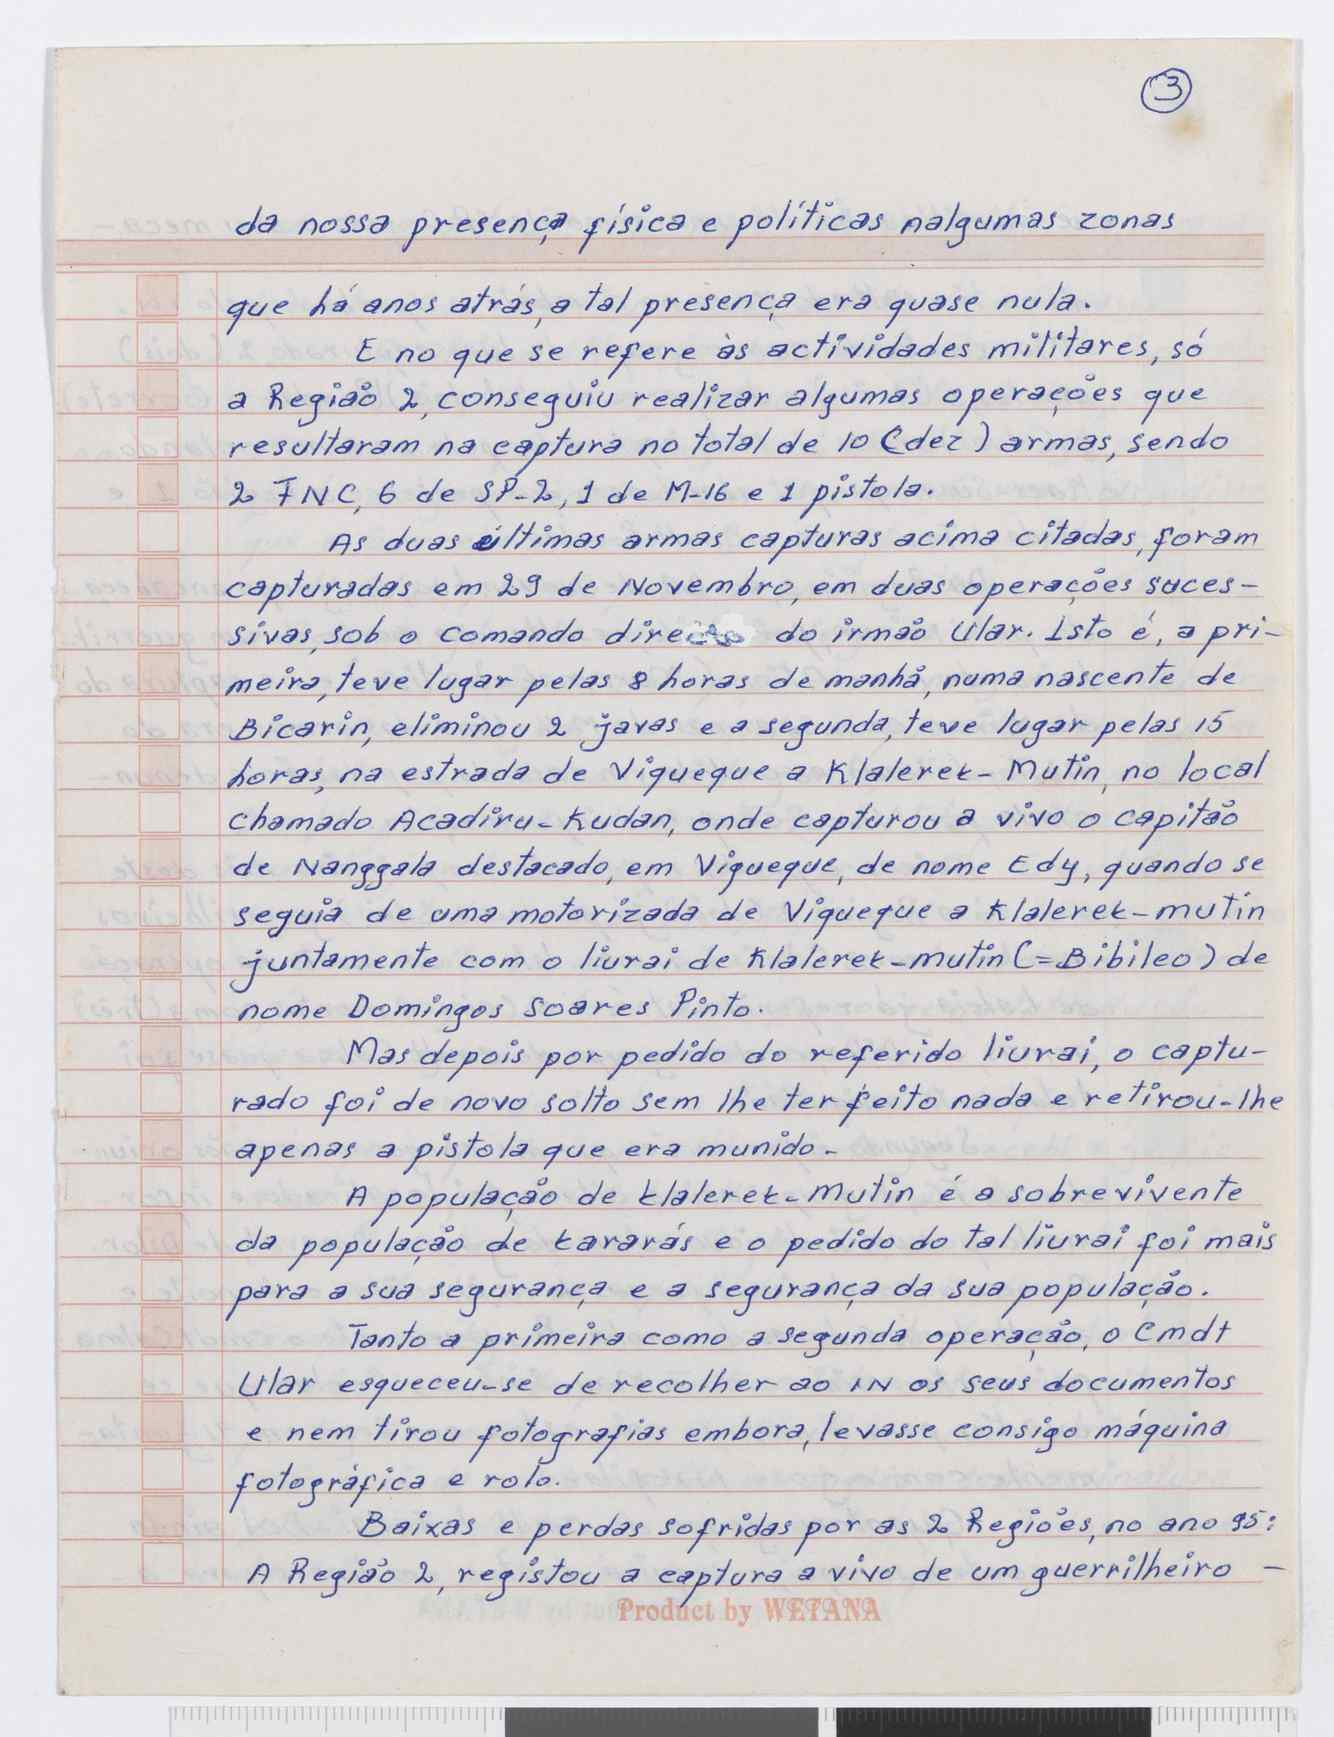 3
da nossa presença física e políticas nalgumas zonas
que há anos atrás, a tal presença era quase nula.
E no que se refere às actividades militares, só
a Região 2, conseguiu realizar algumas operações que
resultaram na captura no total de 10 (dez) armas, sendo
2 FNC, 6 de SP-2, 1 de M-16 e 1 pistola.
As duas últimas armas capturas acima citadas, foram
capturadas em 29 de Novembro, em duas operações suces-
sivas, sob o comando directo do irmão Ular. Isto é, a pri-
meira, teve lugar pelas 8 horas de manhã, numa nascente de
Bicarin, eliminou 2 javas e a segunda, teve lugar pelas 15
horas, na estrada de Viqueque a Klalerek-Mutin, no local
chamado Acadiru-Kudan, onde capturou a vivo o capitão
de Nanggala destacado, em Viqueque, de nome Edy, quando se
seguia de uma motorizada de Viqueque a Klalerek-mutin
juntamente com o liurai de Klalerek-mutin (=Bibileo) de
nome Domingos Soares Pinto.
Mas depois por pedido do referido liurai, o captu-
rado foi de novo solto sem lhe ter feito nada e retirou-lhe
apenas a pistola que era munido.
A população de Klalerek-Mutin é a sobrevivente
da população de Kararás e o pedido do tal liurai foi mais
para a sua segurança e a segurança da sua população.
Tanto a primeira como a segunda operação, o Cmdt
Ular esqueceu-se de recolher ao IN os seus documentos
e nem tirou fotografias embora, levasse consigo máquina
fotográfica e rolo.
Baixas e perdas sofridas por as 2 Regiões, no ano 95:
A Região 2, registou a captura a vivo de um guerrilheiro -
Product by WETANA